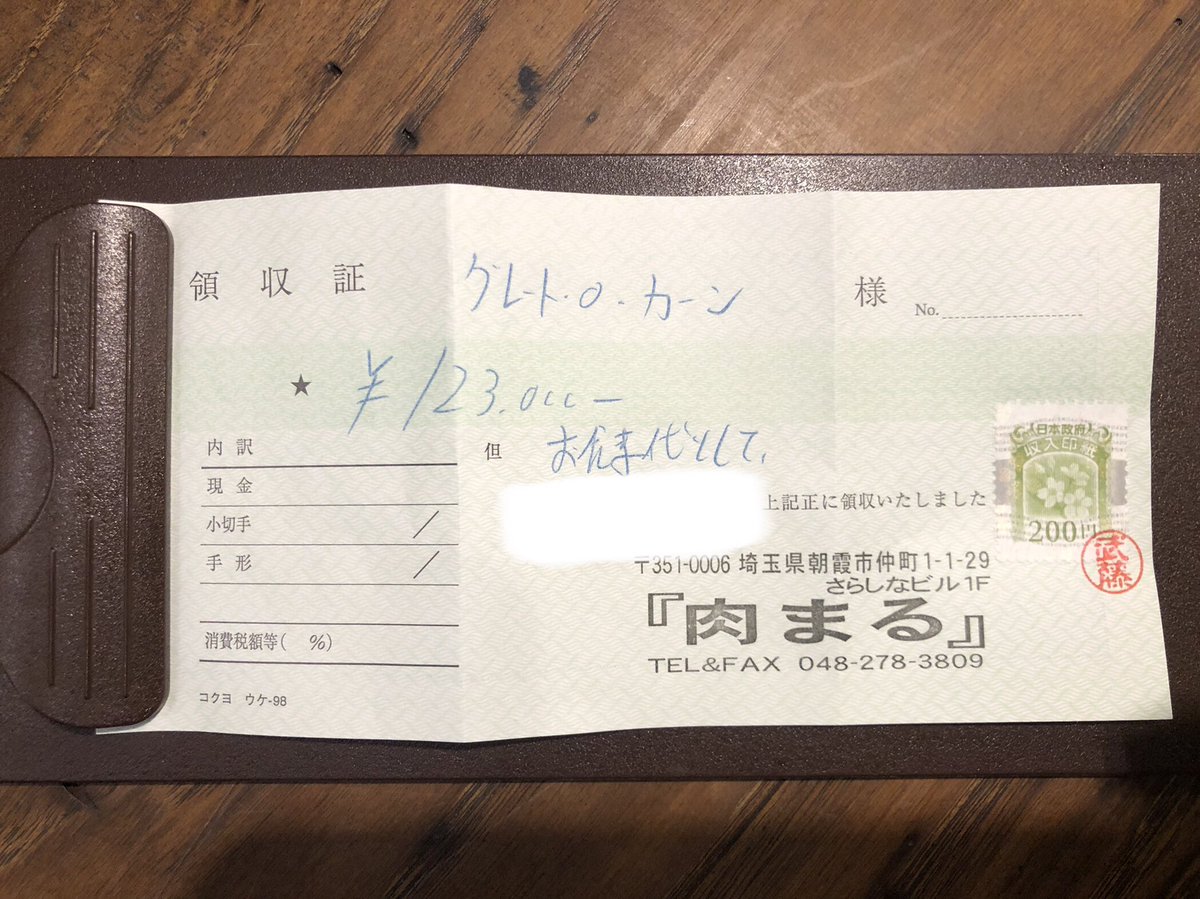 領収証 グレート・O・カーン 様
No.
★ ¥123.000-
内訳 但 お食事代として、
現金
上記正に領収いたしました
小切手 /
手形 /
消費税額等( %)
コクヨ ウケ-98
〒351-0006 埼玉県朝霞市仲町1-1-29
さらしなビル1F
『肉まる』
TEL&FAX 048-278-3809
日本政府
収入印紙
200円
武藤